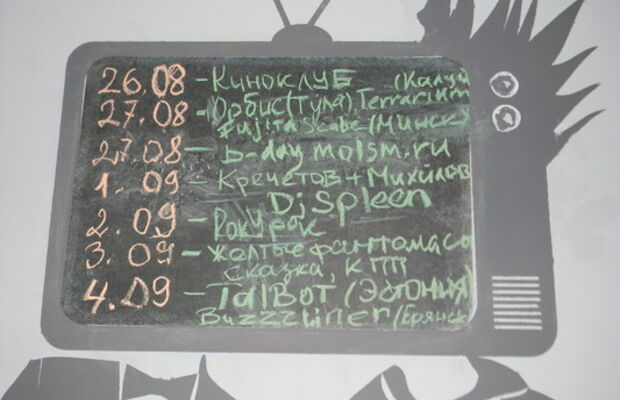 26.08 - Киноклуб (Калуга
27.08 - Орбис(Тула), Terrarium
Fujita Scale (Минск)
27.08 - b-day molsm.ru
1. 09 - Кречетов + Михилов
Dj Spleen
2. 09 - Рокурок
3. 09 - Желтые фантомасы
Сказка, КПП
4. 09 - TalBoT (Эстония)
Buzzzliner (Брянск